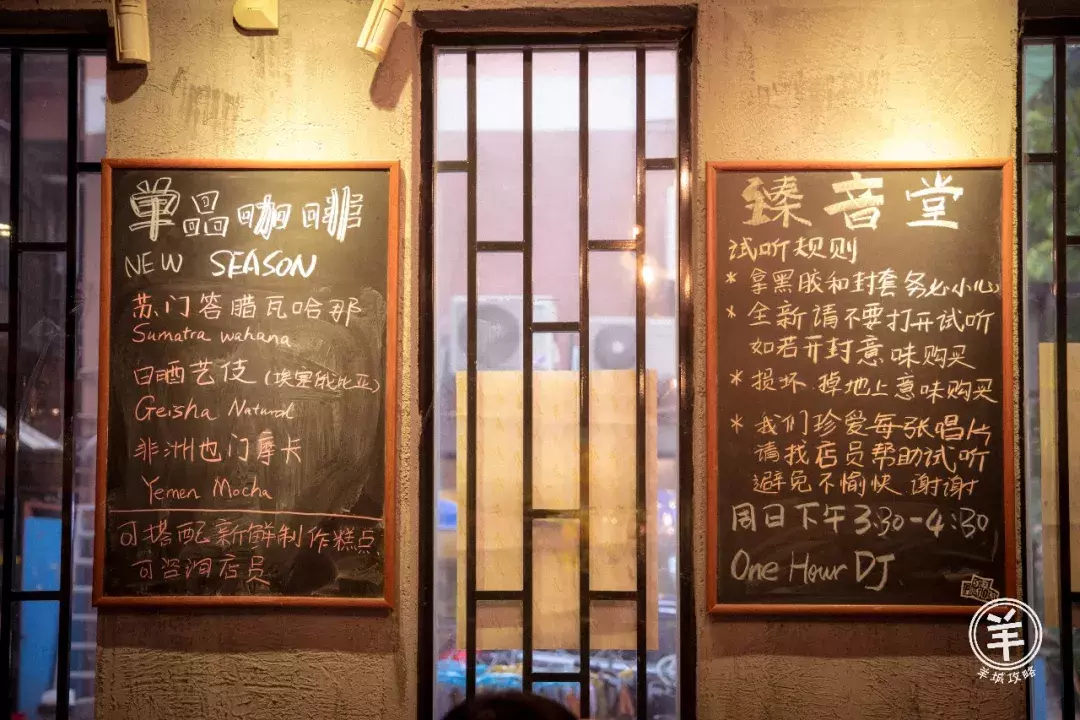 單品咖啡
NEW SEASON
苏门答腊瓦哈那
Sumatra wahana
日晒艺伎(埃塞俄比亚)
Geisha Natural
非洲也门摩卡
Yemen Mocha
可搭配新鲜制作糕点
可咨询店员
臻音堂
试听规则
* 拿黑胶和封套务必小心
* 全新请不要打开试听
如若开封意味购买
* 损坏.掉地上意味购买
* 我们珍爱每张唱片
请找店员帮助试听
避免不愉快 谢谢
周日下午3:30-4:30
One Hour DJ
羊
羊城攻略